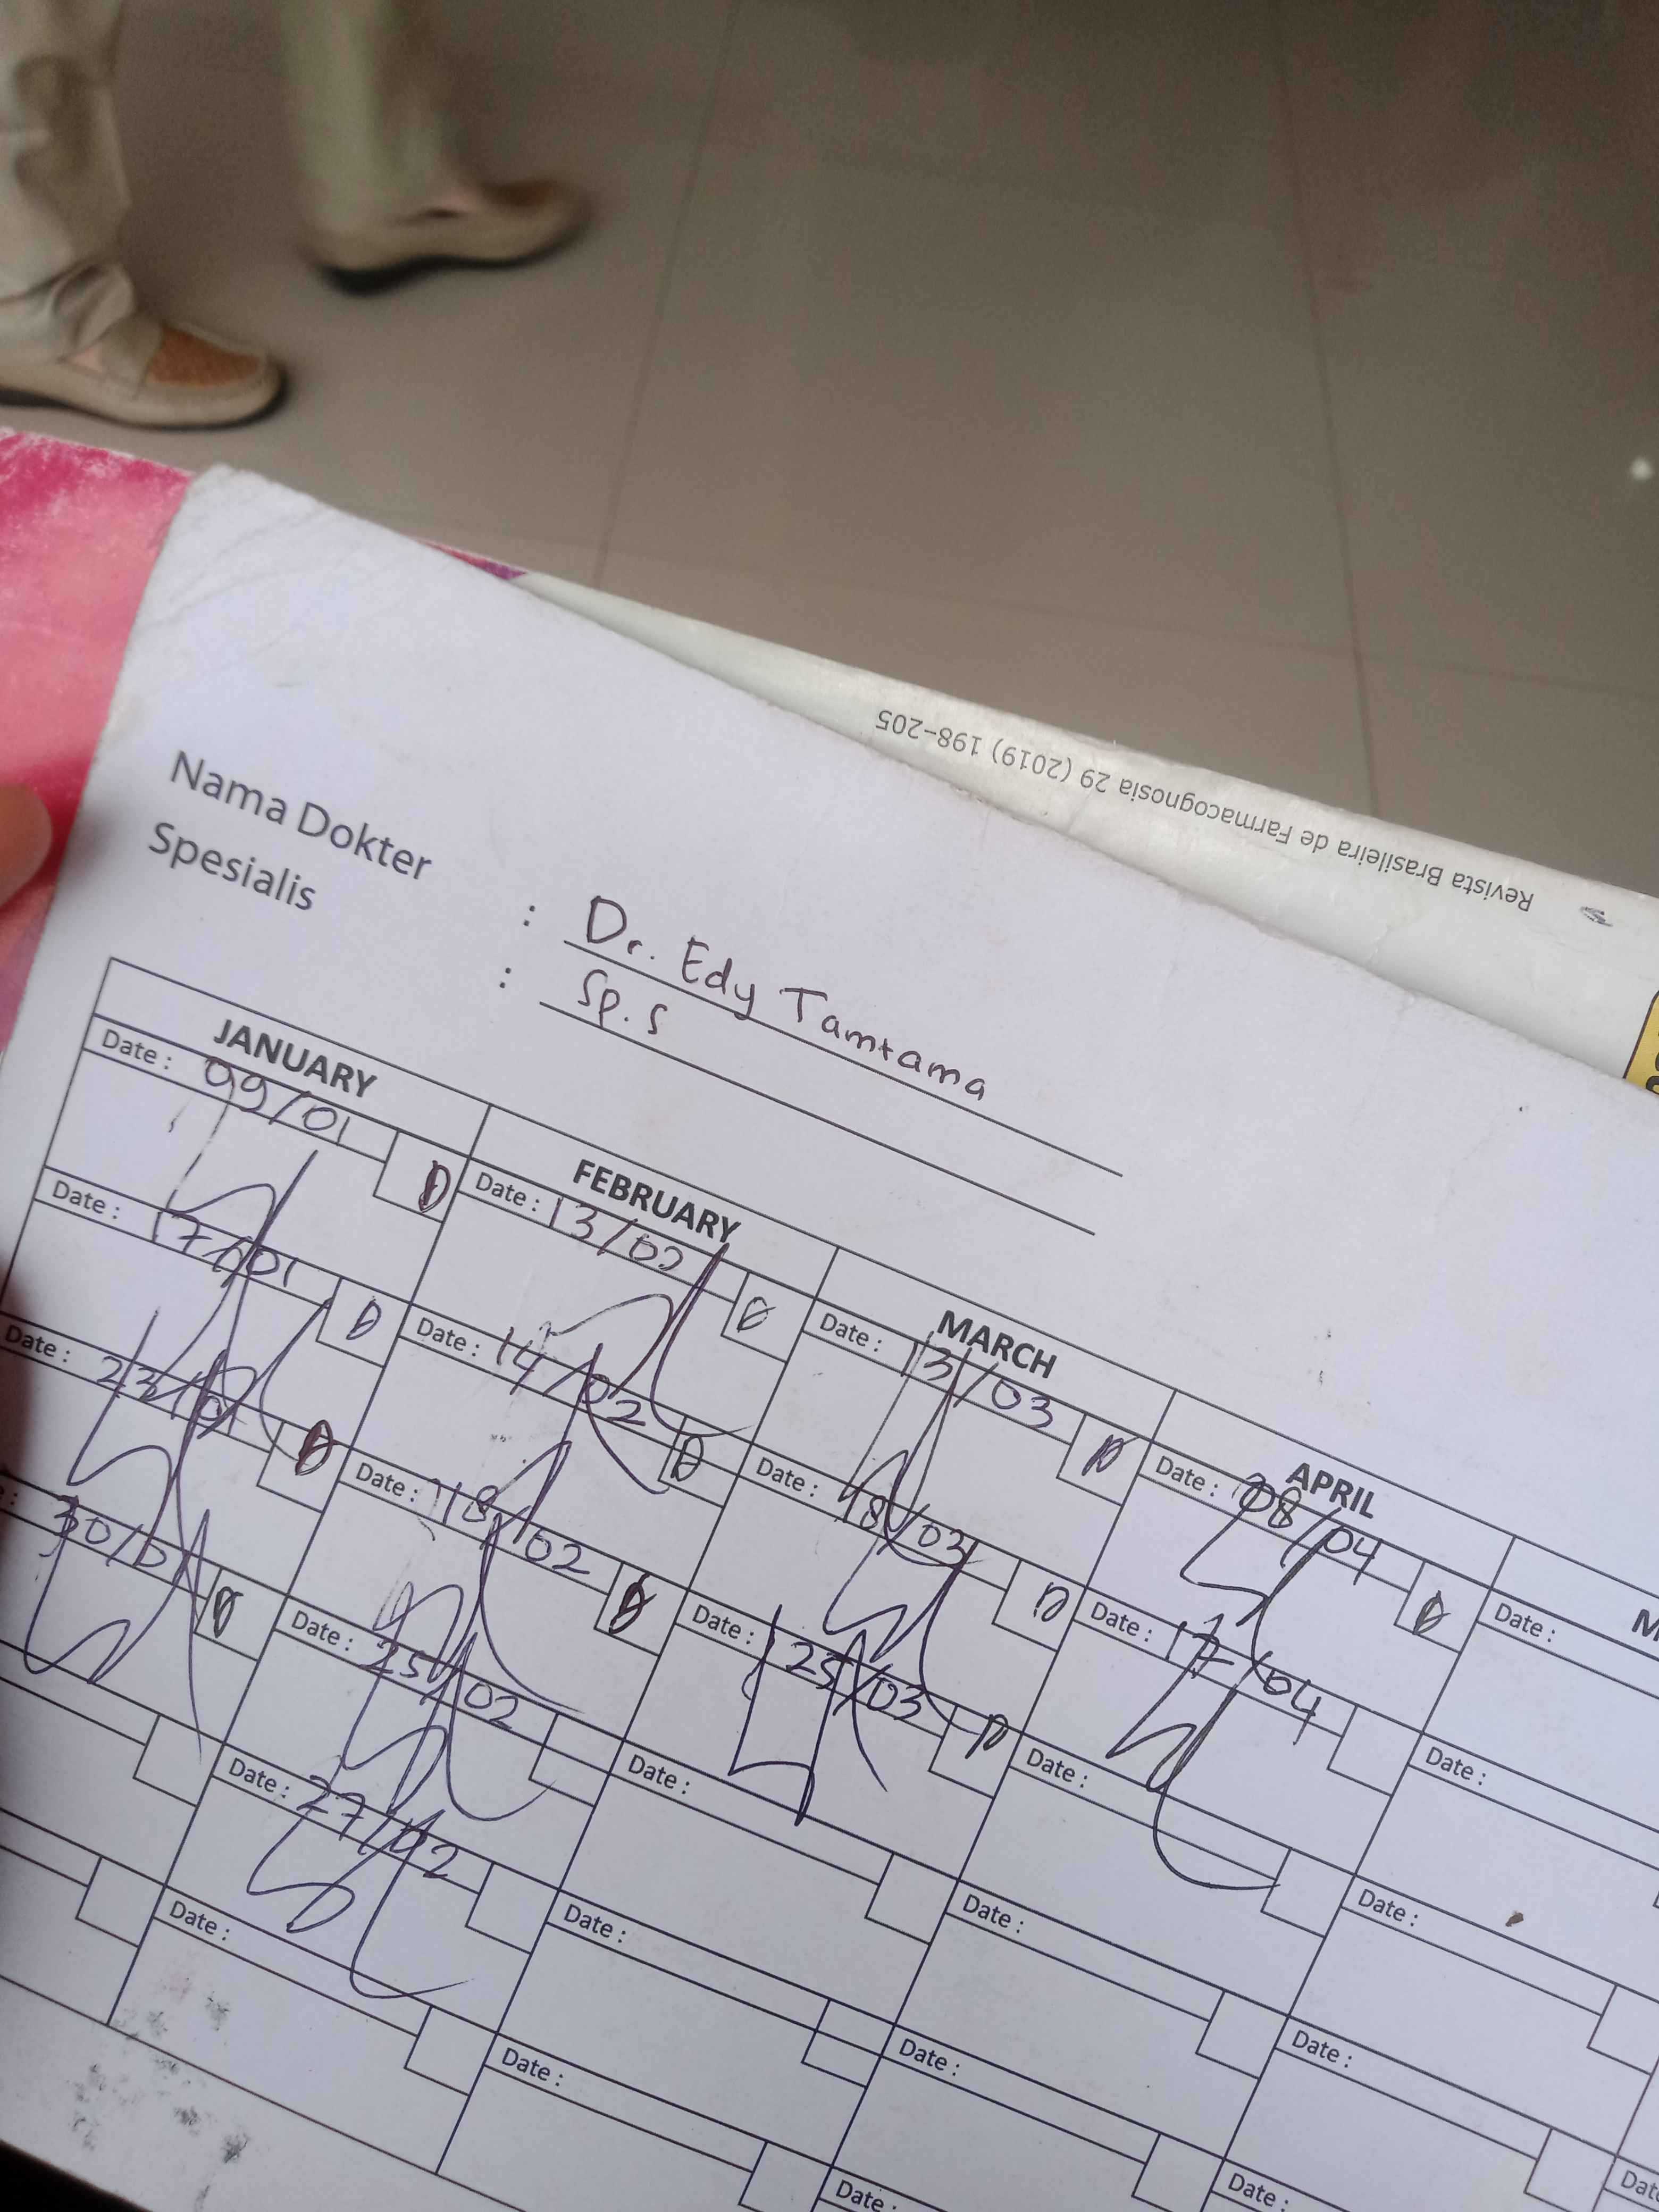 Revista Brasileira de Farmacognosia 29 (2019) 198-205
Nama Dokter : Dr. Edy Tamtama
Spesialis : Sp.S
JANUARY
Date : 09/01
D
Date : 17/01
D
Date : 23/01
D
30/01
D
FEBRUARY
Date : 13/02
D
Date : 14/02
D
Date : 18/02
D
Date : 25/02
Date : 27/02
Date :
MARCH
Date : 13/03
D
Date : 18/03
D
Date : 25/03
D
Date :
Date :
Date :
APRIL
Date : 08/04
D
Date : 17/04
Date :
Date :
Date :
Date :
Date :
Date :
Date :
Date :
Date :